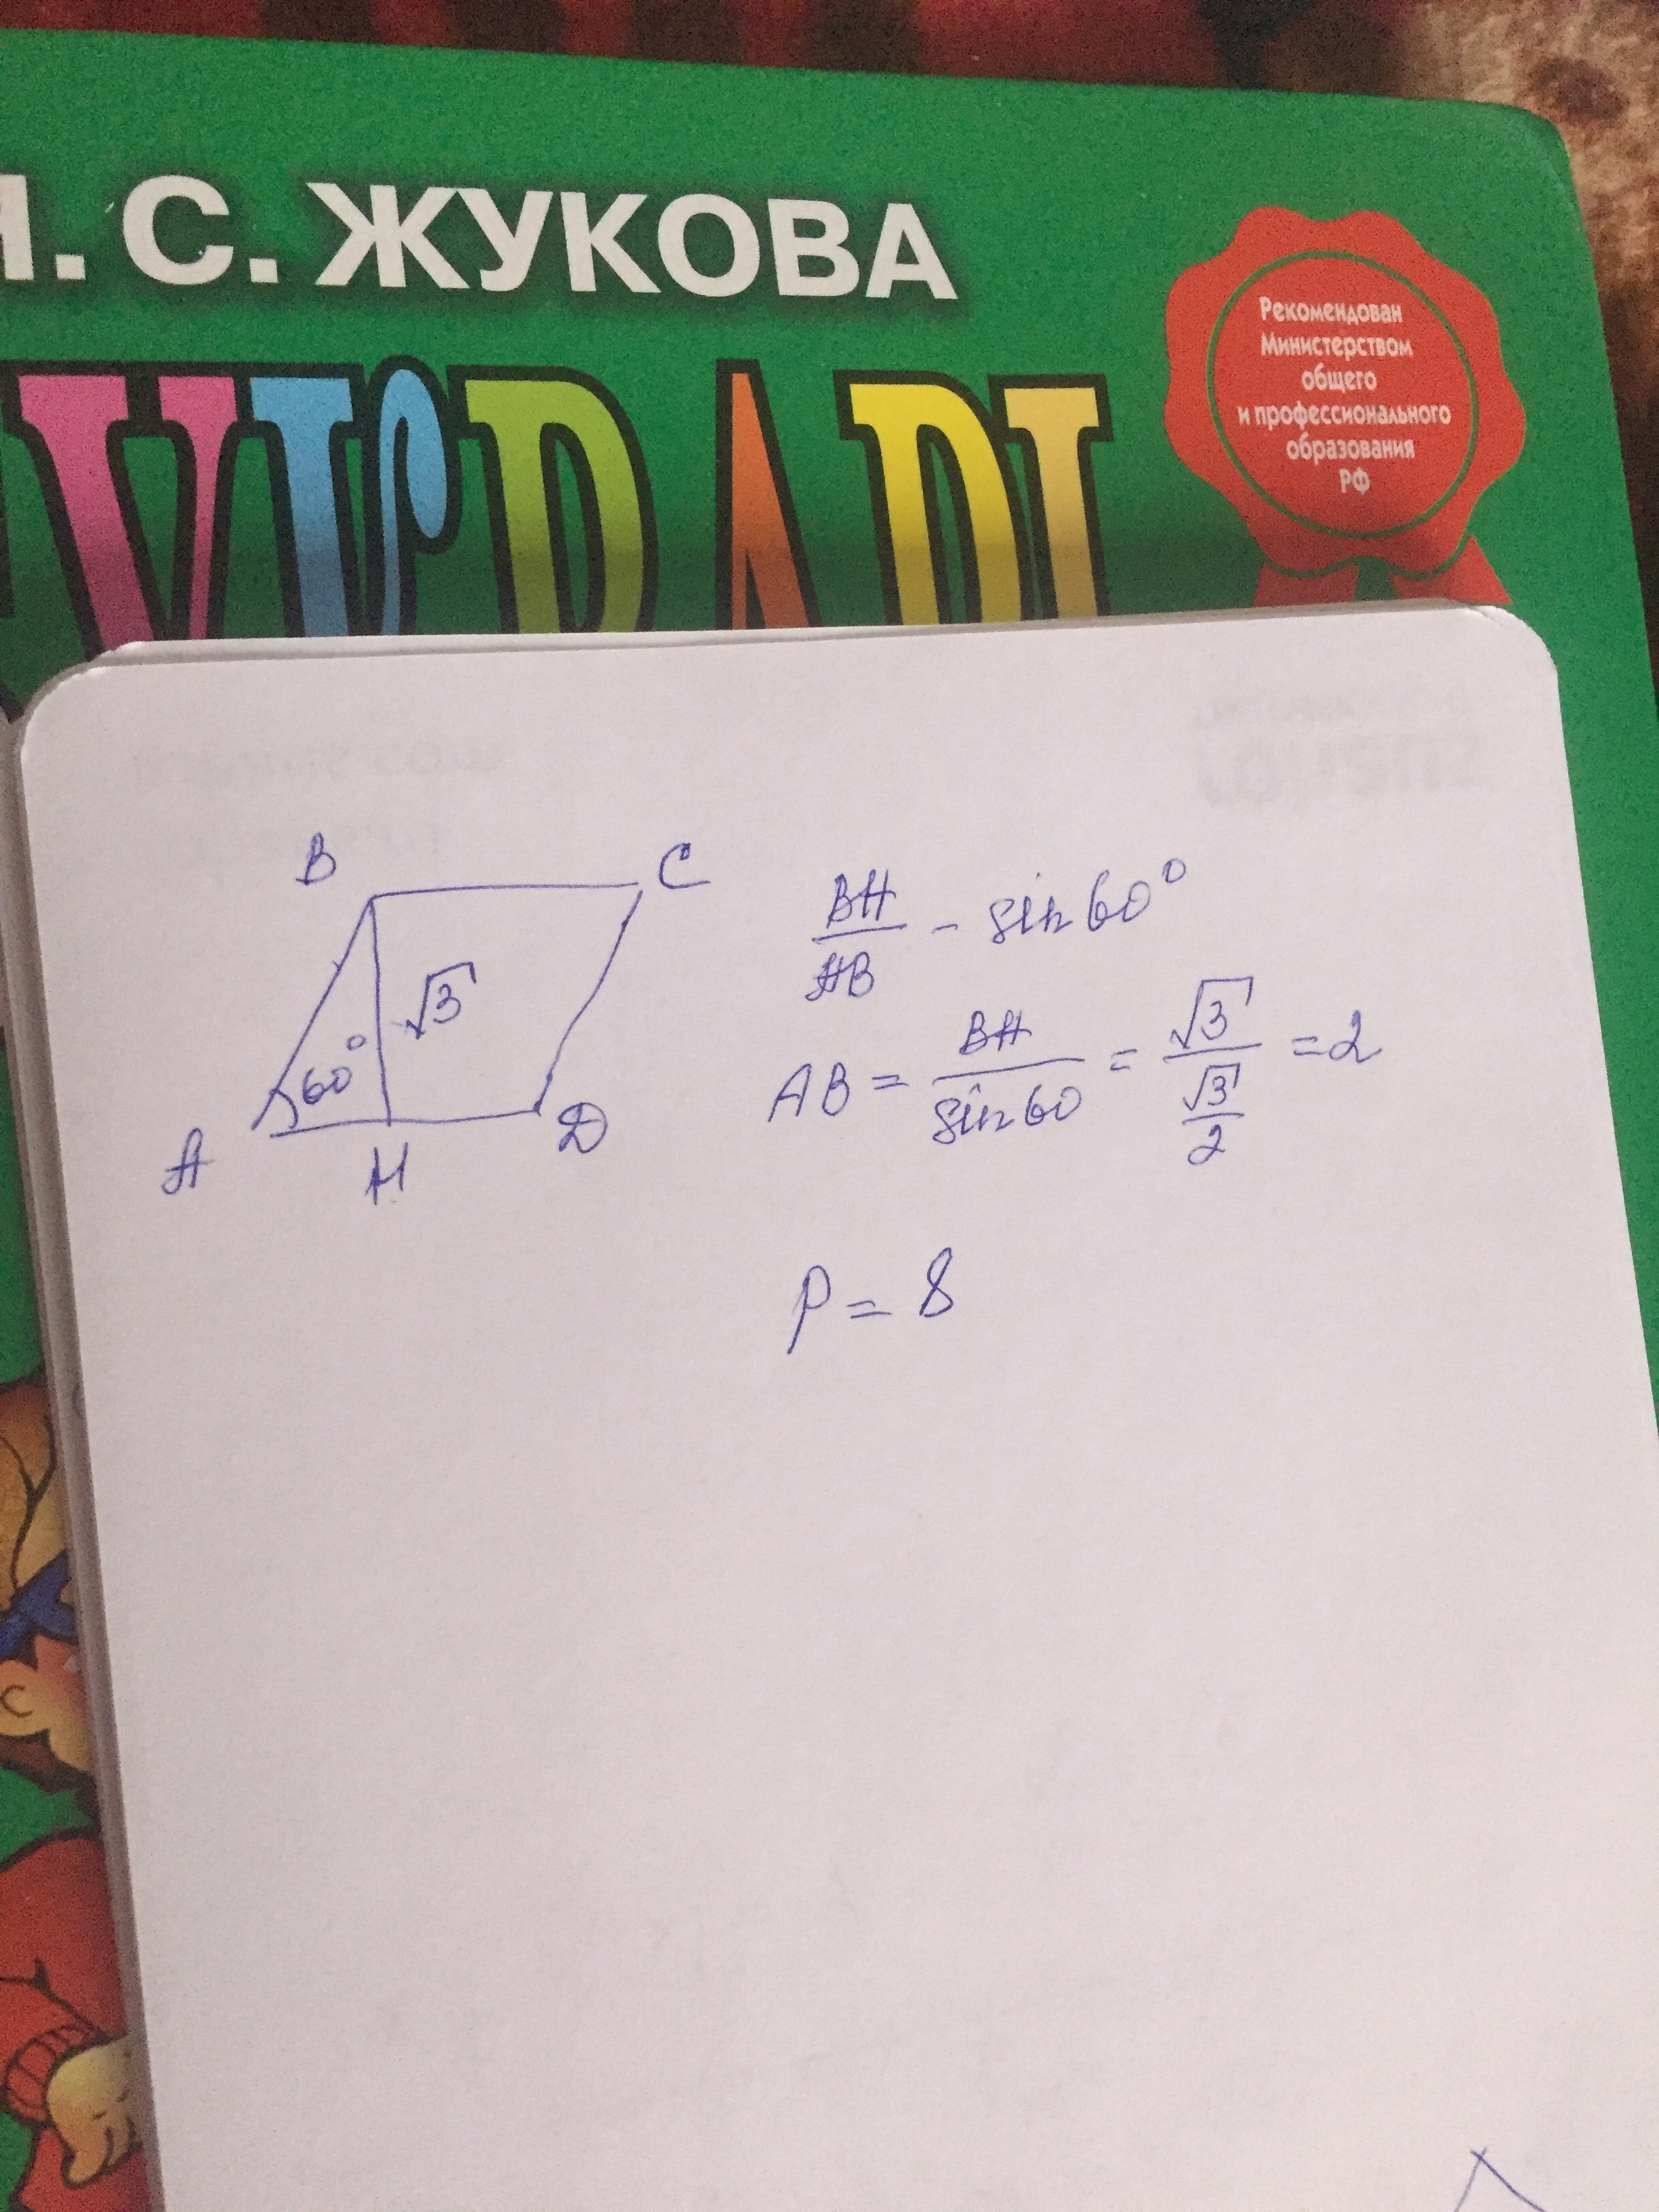 . С. ЖУКОВА
Рекомендован
Министерством
общего
и профессионального
образования
РФ
B C
√3
60°
A H D
BH/AB - sin 60°
AB = BH/sin 60 = √3/(√3/2) = 2
P = 8